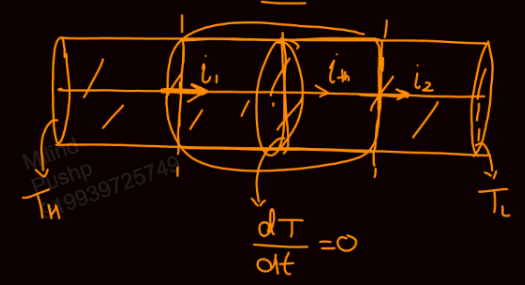 i₁
i_th
i₂
Milind
Pushp
919939725749
T_H
T_L
dT/dt = 0